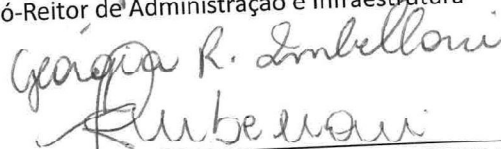 ó-Reitor de Administração e Infraestrutura
Geórgia R. Imbelloni